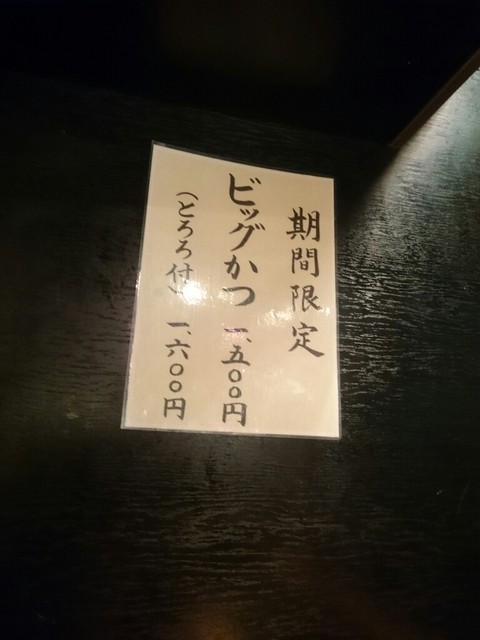 期間限定
ビッグかつ 一、五〇〇円
(とろろ付) 一、六〇〇円